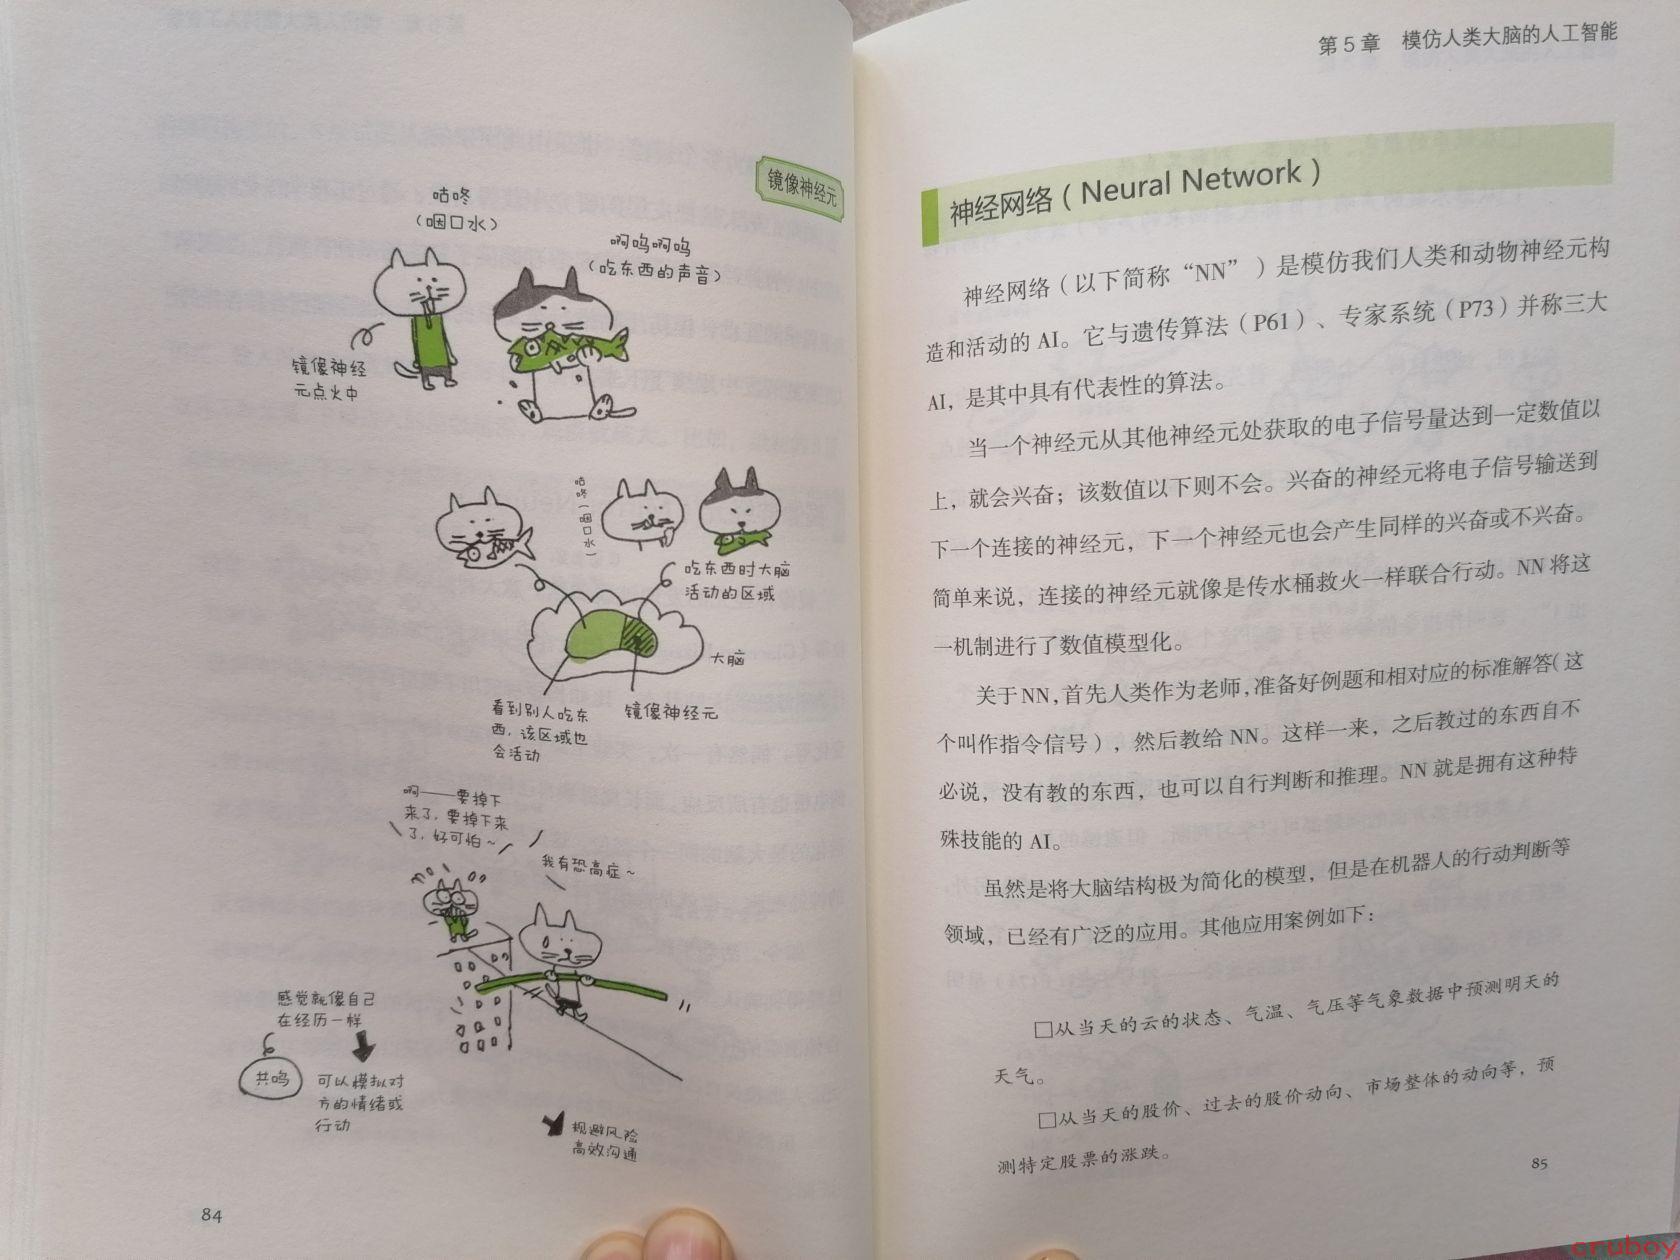 镜像神经元
咕咚
（咽口水）
啊呜啊呜
（吃东西的声音）
镜像神经
元点火中
咕咚（咽口水）
吃东西时大脑
活动的区域
大脑
看到别人吃东
西，该区域也
会活动
镜像神经元
啊——要掉下
来了，要掉下来
了，好可怕～
我有恐高症～
感觉就像自己
在经历一样
共鸣
可以模拟对
方的情绪或
行动
规避风险
高效沟通
84
第5章 模仿人类大脑的人工智能
神经网络（Neural Network）
神经网络（以下简称“NN”）是模仿我们人类和动物神经元构
造和活动的 AI。它与遗传算法（P61）、专家系统（P73）并称三大
AI，是其中具有代表性的算法。
当一个神经元从其他神经元处获取的电子信号量达到一定数值以
上，就会兴奋；该数值以下则不会。兴奋的神经元将电子信号输送到
下一个连接的神经元，下一个神经元也会产生同样的兴奋或不兴奋。
简单来说，连接的神经元就像是传水桶救火一样联合行动。NN 将这
一机制进行了数值模型化。
关于NN，首先人类作为老师，准备好例题和相对应的标准解答（这
个叫作指令信号），然后教给 NN。这样一来，之后教过的东西自不
必说，没有教的东西，也可以自行判断和推理。NN 就是拥有这种特
殊技能的 AI。
虽然是将大脑结构极为简化的模型，但是在机器人的行动判断等
领域，已经有广泛的应用。其他应用案例如下：
□从当天的云的状态、气温、气压等气象数据中预测明天的
天气。
□从当天的股价、过去的股价动向、市场整体的动向等，预
测特定股票的涨跌。
85
cruboy